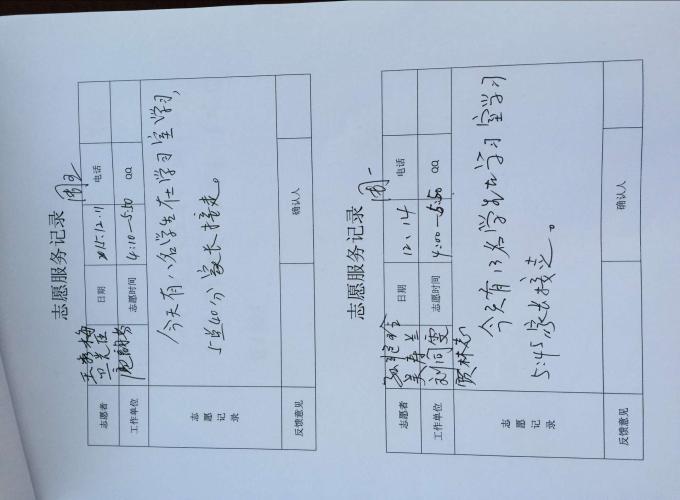 志愿服务记录
志愿者
日期
15.12.11
电话
工作单位
志愿时间
4:10—5:50
QQ
志愿记录
今天有八名学生在学习室学习,
5点40分家长接走。
反馈意见
确认人
志愿服务记录
周一
志愿者
吴寿兰
日期
12.14
电话
工作单位
刘同雯
志愿时间
4:00—5:50
QQ
贾林志
志愿记录
今天有13名学生在学习室学习
5:45家长接走。
反馈意见
确认人